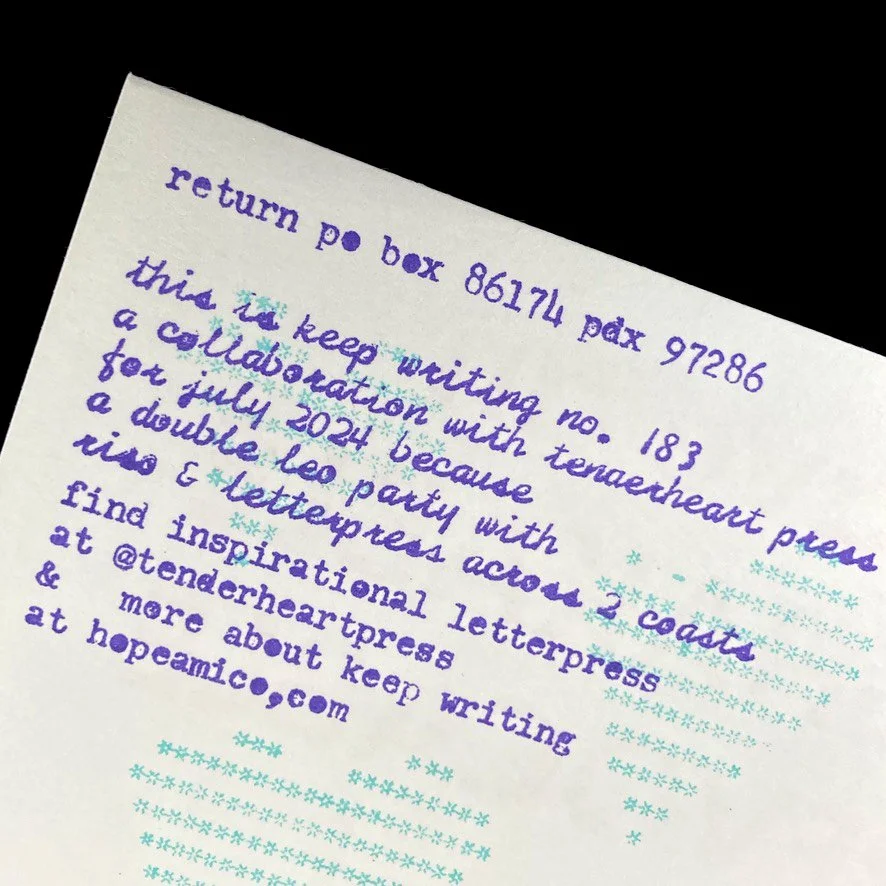 return po box 86174 pdx 97286
this is keep writing no. 183
a collaboration with tenaerheart press
for july 2024 because
a double leo party with
riso & letterpress across 2 coasts
find inspirational letterpress
at @tenderheartpress
& more about keep writing
at hopeamico,com